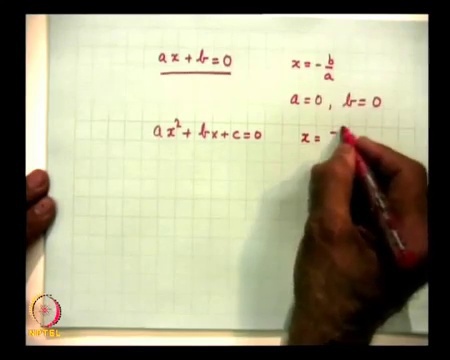 ax + b = 0
x = - b/a
a = 0, b = 0
ax² + bx + c = 0
x = -
NPTEL